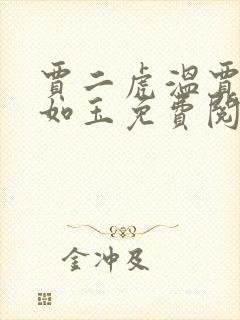 賈二虎溫賈
如玉免費閱
金沖及